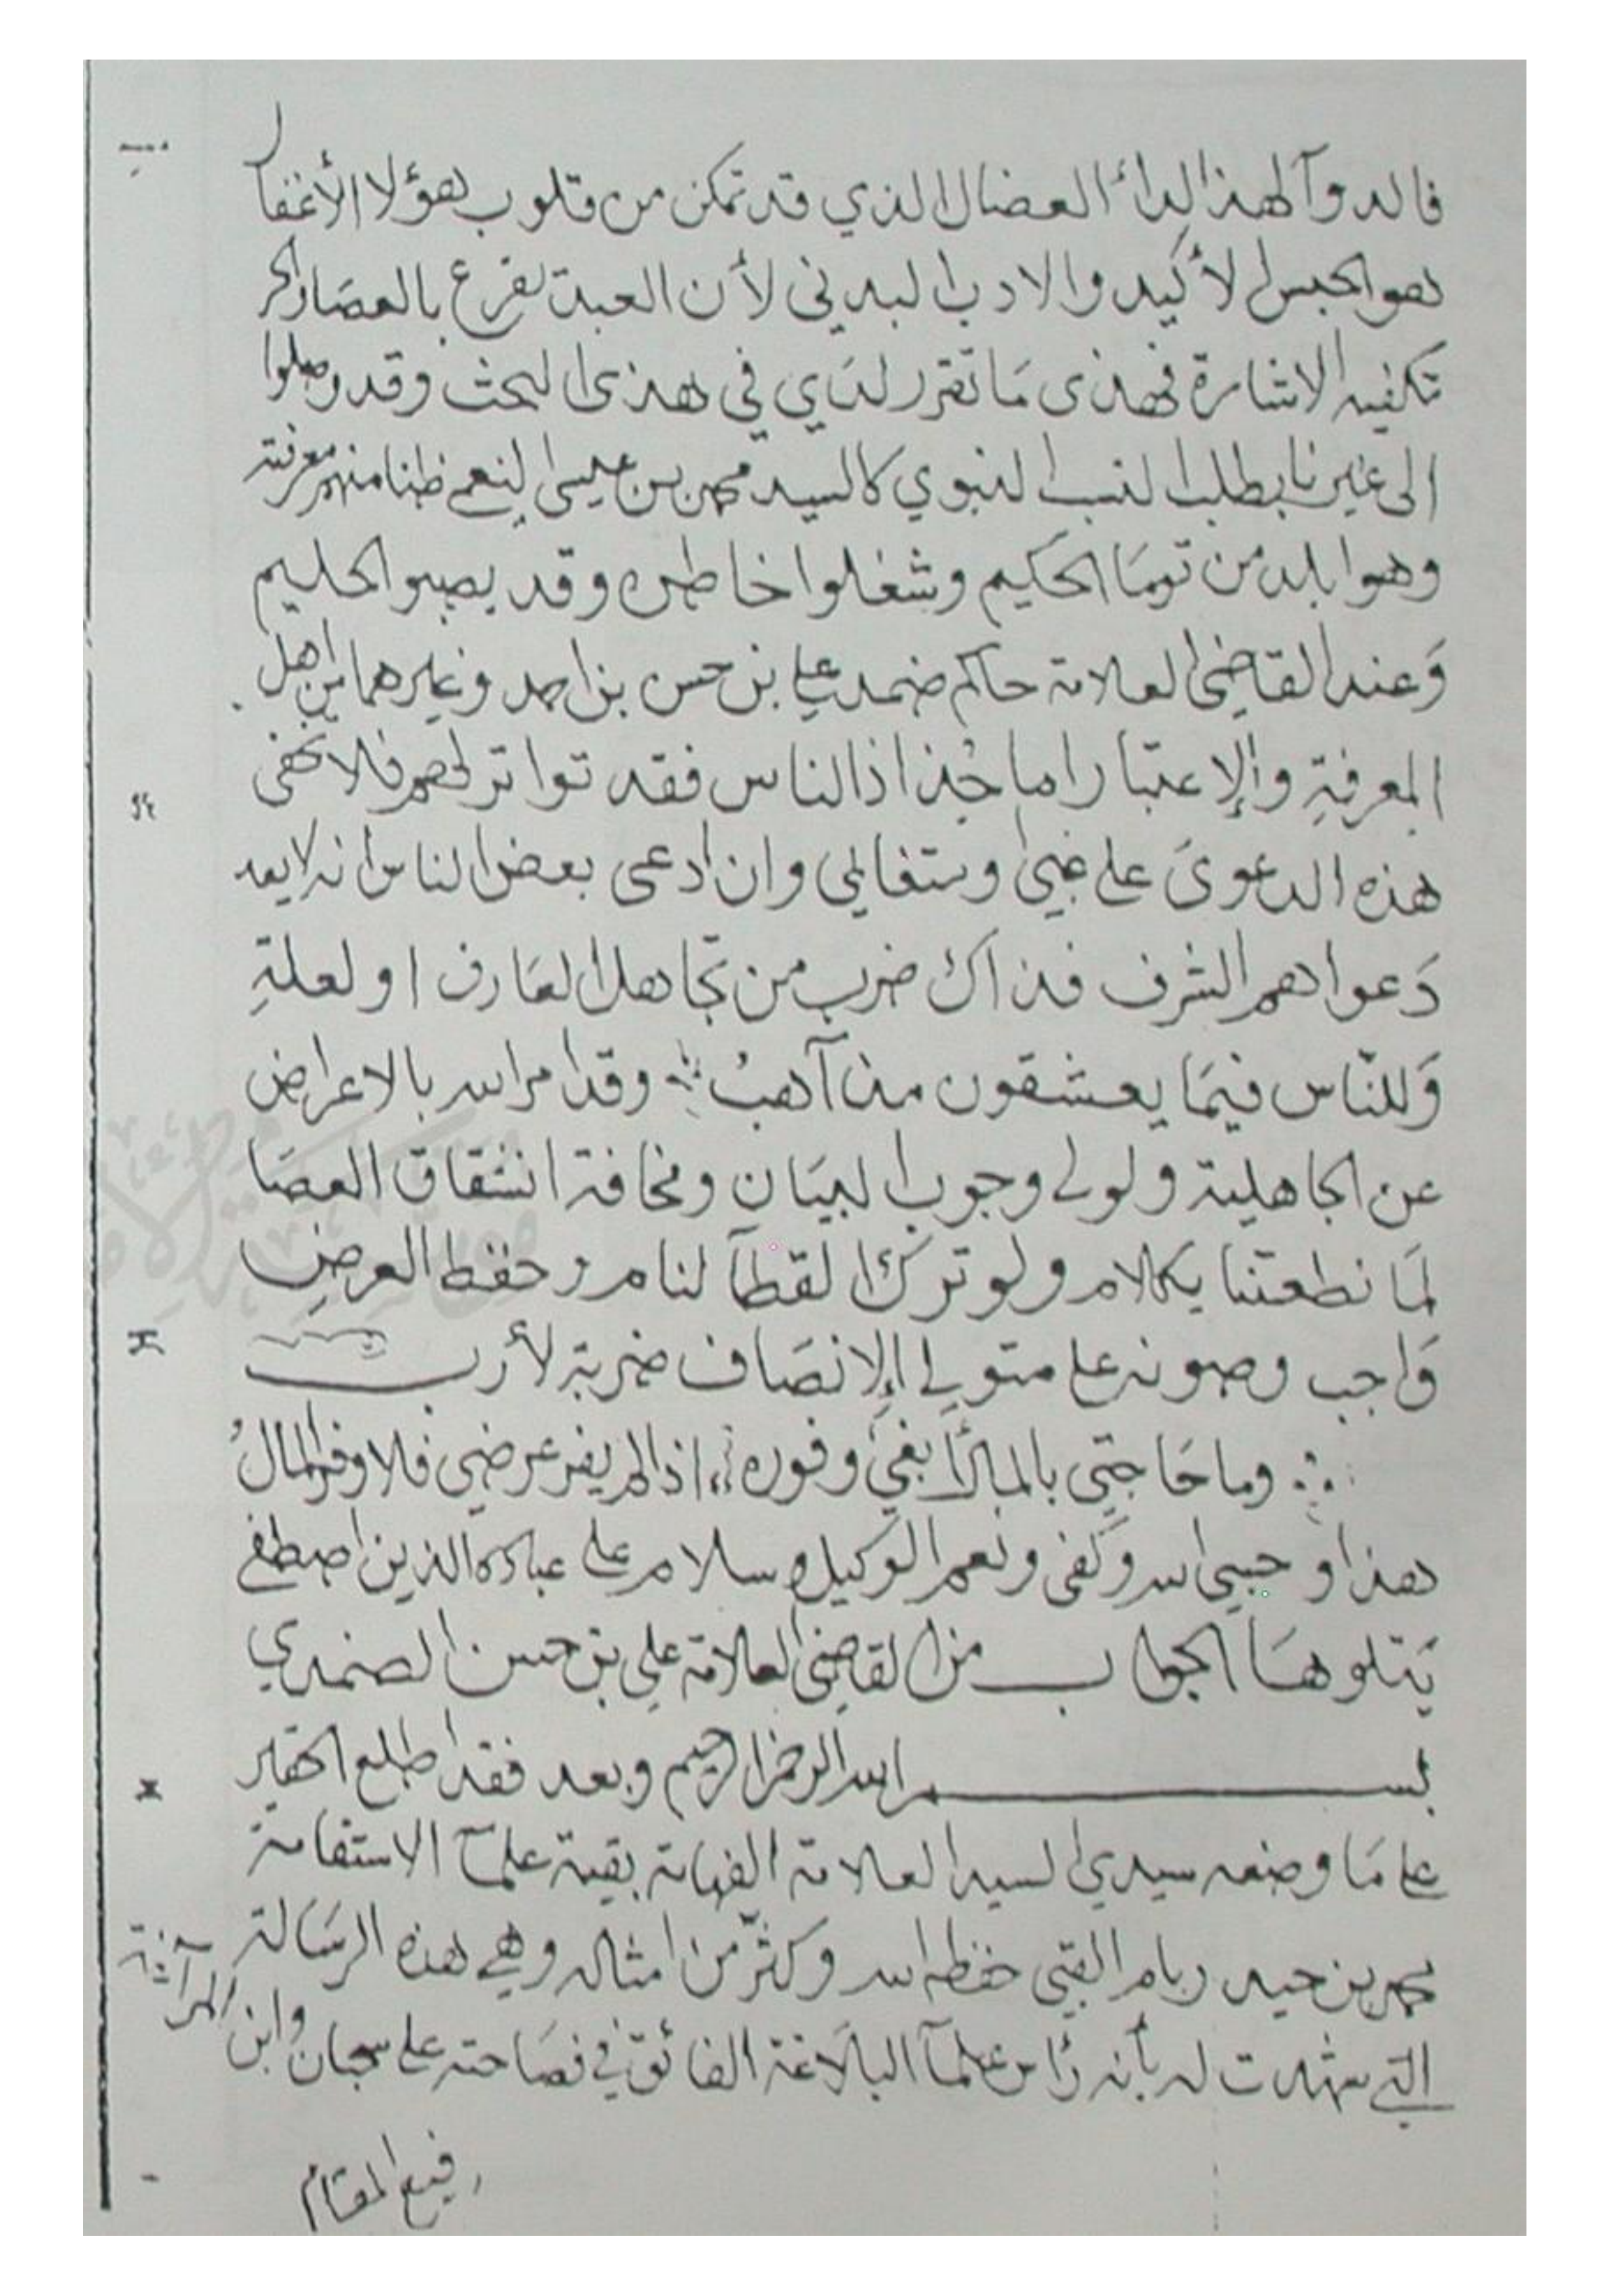 فالدوآ لهذا الدآء العضال الذي قد تمكن من قلوب هؤلا الأغفال
هو الحبس الأكيد والادب البدني لأن العبد يقرع بالعصا والحر
تكفيه الاشارة فهذى مَا تقرر لدَي في هذى البحث وقد وصلوا
الى غيرنا بطلب النسب النبوي كالسيد محمد بن عيسى النعمي ظنا منهم معرفته
وهو ابلد من تومَا الحكيم وشغلوا خاطره وقد يصبو الحليم
وَعند القاضي العلامة حاكم ضمد علي بن حسن بن احمد وغيرهما من اهل
المعرفةِ والإعتبار اما جُذاذ الناس فقد تواتر لهم فلا تخفى
هذه الدعوىَ على غبي ومتغابي وان ادعى بعض الناس انه لا يعد
دَعواهم الشرف فذاك ضرب من تجاهل العَارف او لعلةِ
وَللنّاس فيمَا يعشقون مذآهبُ وقد امر الله بالاعراض
عن الجاهلية ولولى وجوب البيَان ومخافة انشقاق العصَا
لمَا نطقتنا بكلام ولو ترك القطآ لنام وحفظ العرضِ
وَاجب وصونه على متولي الإنصَاف ضربة لأرب
وما حَاجتي بالمال أبغي وفوره اذا لم يفر عرضي فلا وفر المالُ
هذا وحسبي الله وكفى ونعم الوكيل وسلام على عباده الذين اصطفى
يَتلوهَا الجواب من القاضي العلامة علي بن حسن الضمدي
بسم الله الرحمن الرحيم وبعد فقد اطلع الحقير
على مَا وضعه سيدي السيد العلامة الفهامة بقية علمآ الاستقامة
محمد بن حيدر بام القبي حفظه الله وكثّر من امثاله وهي هذه الرسَالة
التي شهدت له بأنه رأس علمآ البلاَغة الفائق في فصَاحته على سحبان وابن المرآغة
رفيع المقام